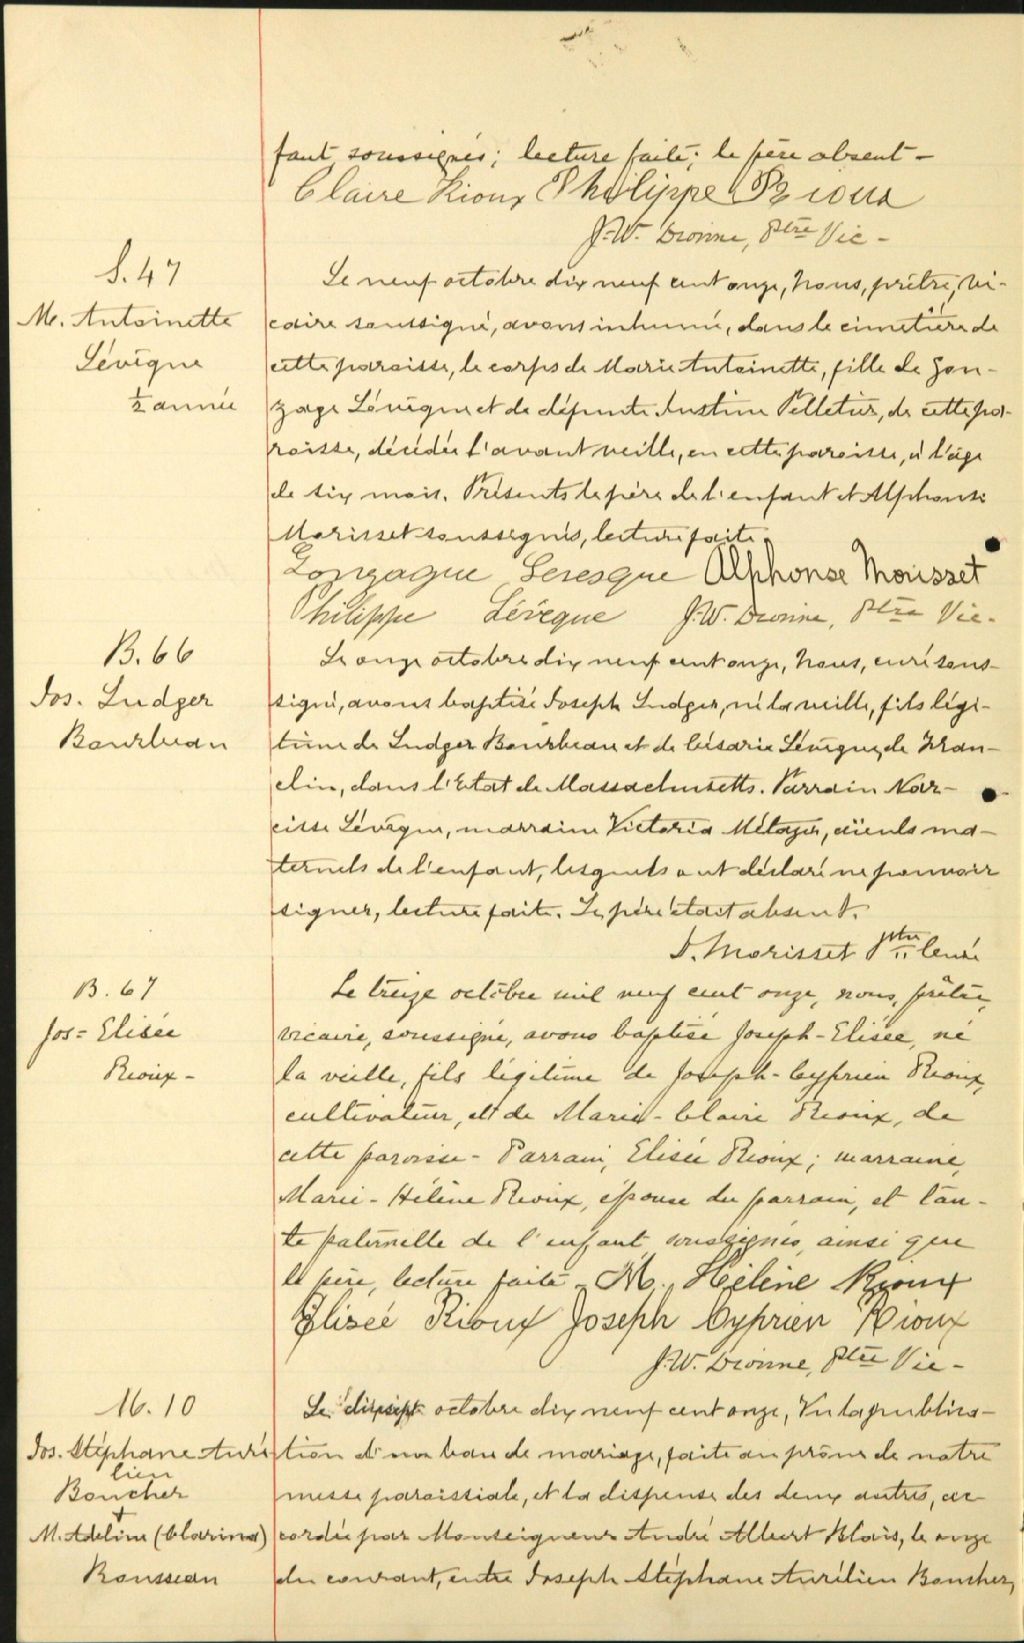 fant, soussignés; lecture faite; le père absent -
Claire Rioux Philippe Rioux
J.-W. Dionne, Ptre Vic -
S. 47
M. Antoinette
Lévêque
½ année
Le neuf octobre dix neuf cent onze, Nous, prêtre, vi-
caire soussigné, avons inhumé, dans le cimetière de
cette paroisse, le corps de Marie Antoinette, fille de Gon-
zage Lévêque et de défunte Justine Pelletier, de cette pa-
roisse, décédée l'avant veille, en cette paroisse, à l'âge
de six mois. Présents le père de l'enfant et Alphonse
Morisset soussignés, lecture faite.
Gonzague Levesque Alphonse Morisset
Philippe Lévêque J.-W. Dionne, Ptre Vic -
B. 66
Jos. Ludger
Bourbeau
Le onze octobre dix neuf cent onze, Nous, curé sous-
signé, avons baptisé Joseph Ludger, né la veille, fils légi-
time de Ludger Bourbeau et de Césarie Lévêque, de Fran-
clin, dans l'Etat de Massachusetts. Parrain Nar-
cisse Lévêque, marraine Victoria Métayer, aïeuls ma-
ternels de l'enfant, lesquels ont déclaré ne pouvoir
signer, lecture faite. Le père était absent.
D. Morisset Ptre Curé
B. 67
Jos = Elisée
Rioux -
Le treize octobre mil neuf cent onze, nous, prêtre,
vicaire, soussigné, avons baptisé Joseph-Elisée, né
la veille, fils légitime de Joseph-Cyprien Rioux,
cultivateur, et de Marie-Claire Rioux, de
cette paroisse - Parrain, Elisée Rioux; marraine,
Marie-Hélène Rioux, épouse du parrain, et tan-
te paternelle de l'enfant, soussignés, ainsi que
le père, lecture faite - M. Hélène Rioux
Elisée Rioux Joseph Cyprien Rioux
J.-W. Dionne, Ptre Vic -
M. 10
Jos. Stéphane Auré
lien
Boucher
+
M. Adeline (Clarina)
Rousseau
Le dixsept octobre dix neuf cent onze, Vu la publica-
tion d'un ban de mariage, faite au prône de notre
messe paroissiale, et la dispense des deux autres, ac-
cordée par Monseigneur André Albert Blais, le onze
du courant, entre Joseph Stéphane Aurélien Boucher,